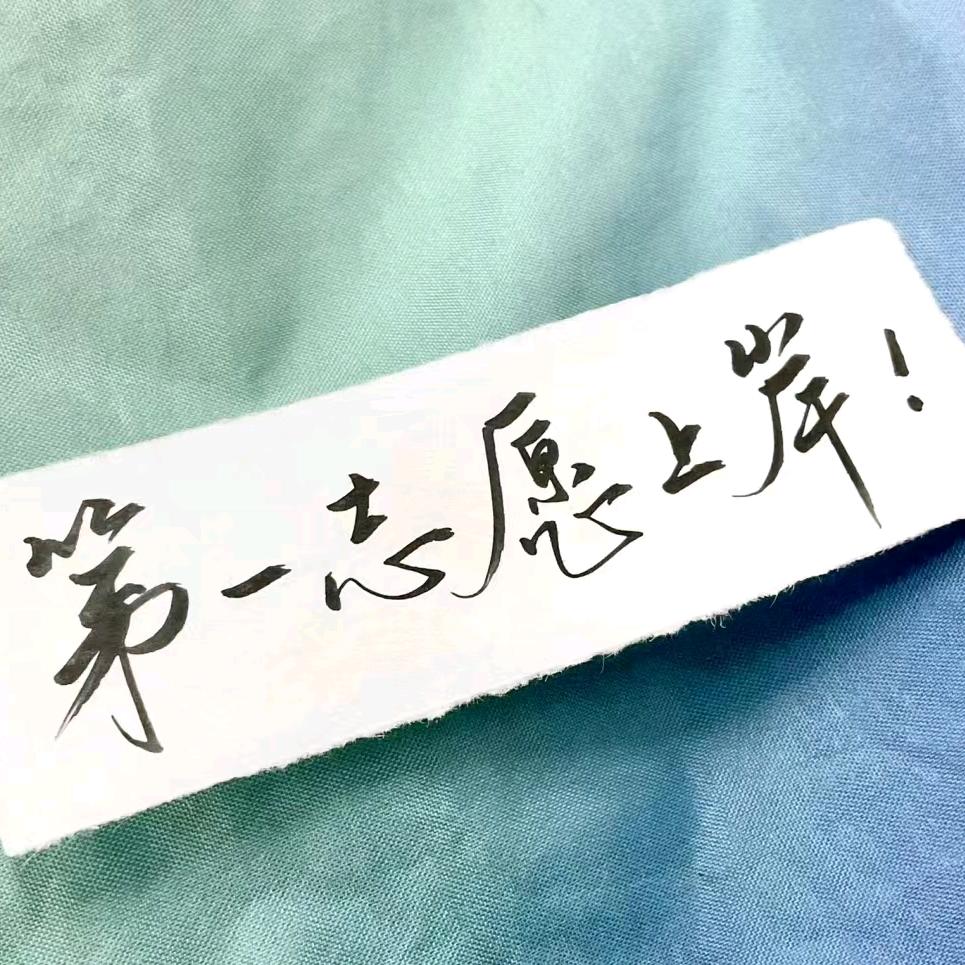 第一志愿上岸！